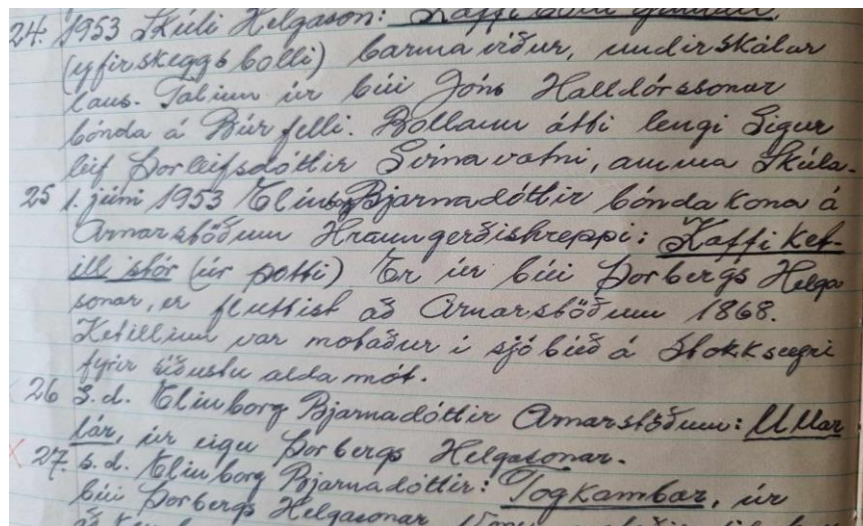 24. 1953 Skúli Helgason: Kaffibolli
(yfirskeggsbolli) barmavíður, undirskálar
laus. Talinn úr búi Jóns Halldórssonar
bónda á Búrfelli. Bollann átti lengi Sigur
leif Þorleifsdóttir Svínavatni, amma Skúla.
25 1. júní 1953 Elínborg Bjarnadóttir bóndakona á
Arnarstöðum Hraungerðishreppi: Kaffiket-
ill stór (úr potti) Er úr búi Þorbergs Helga
sonar, er fluttist að Arnarstöðum 1868.
Ketillinn var notaður í sjóbúð á Stokkseyri
fyrir síðustu aldamót.
26 S.d. Elínborg Bjarnadóttir Arnarstöðum: Ullar
lár, úr eigu Þorbergs Helgasonar.
X 27. s.d. Elínborg Bjarnadóttir: Togkambar, úr
búi Þorbergs Helgasonar